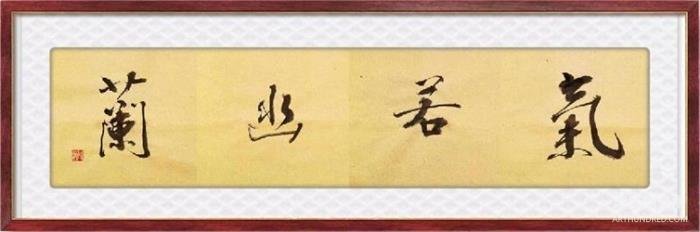 氣若幽蘭
ARTHUNDRED.COM